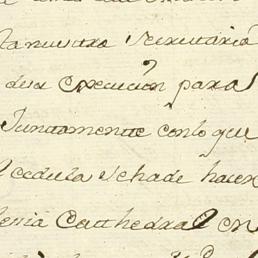 ta nuestra Secretaria
desu execucion para
Juntamente conlo que
Cedula se hade hacer
lesia Catthedral en